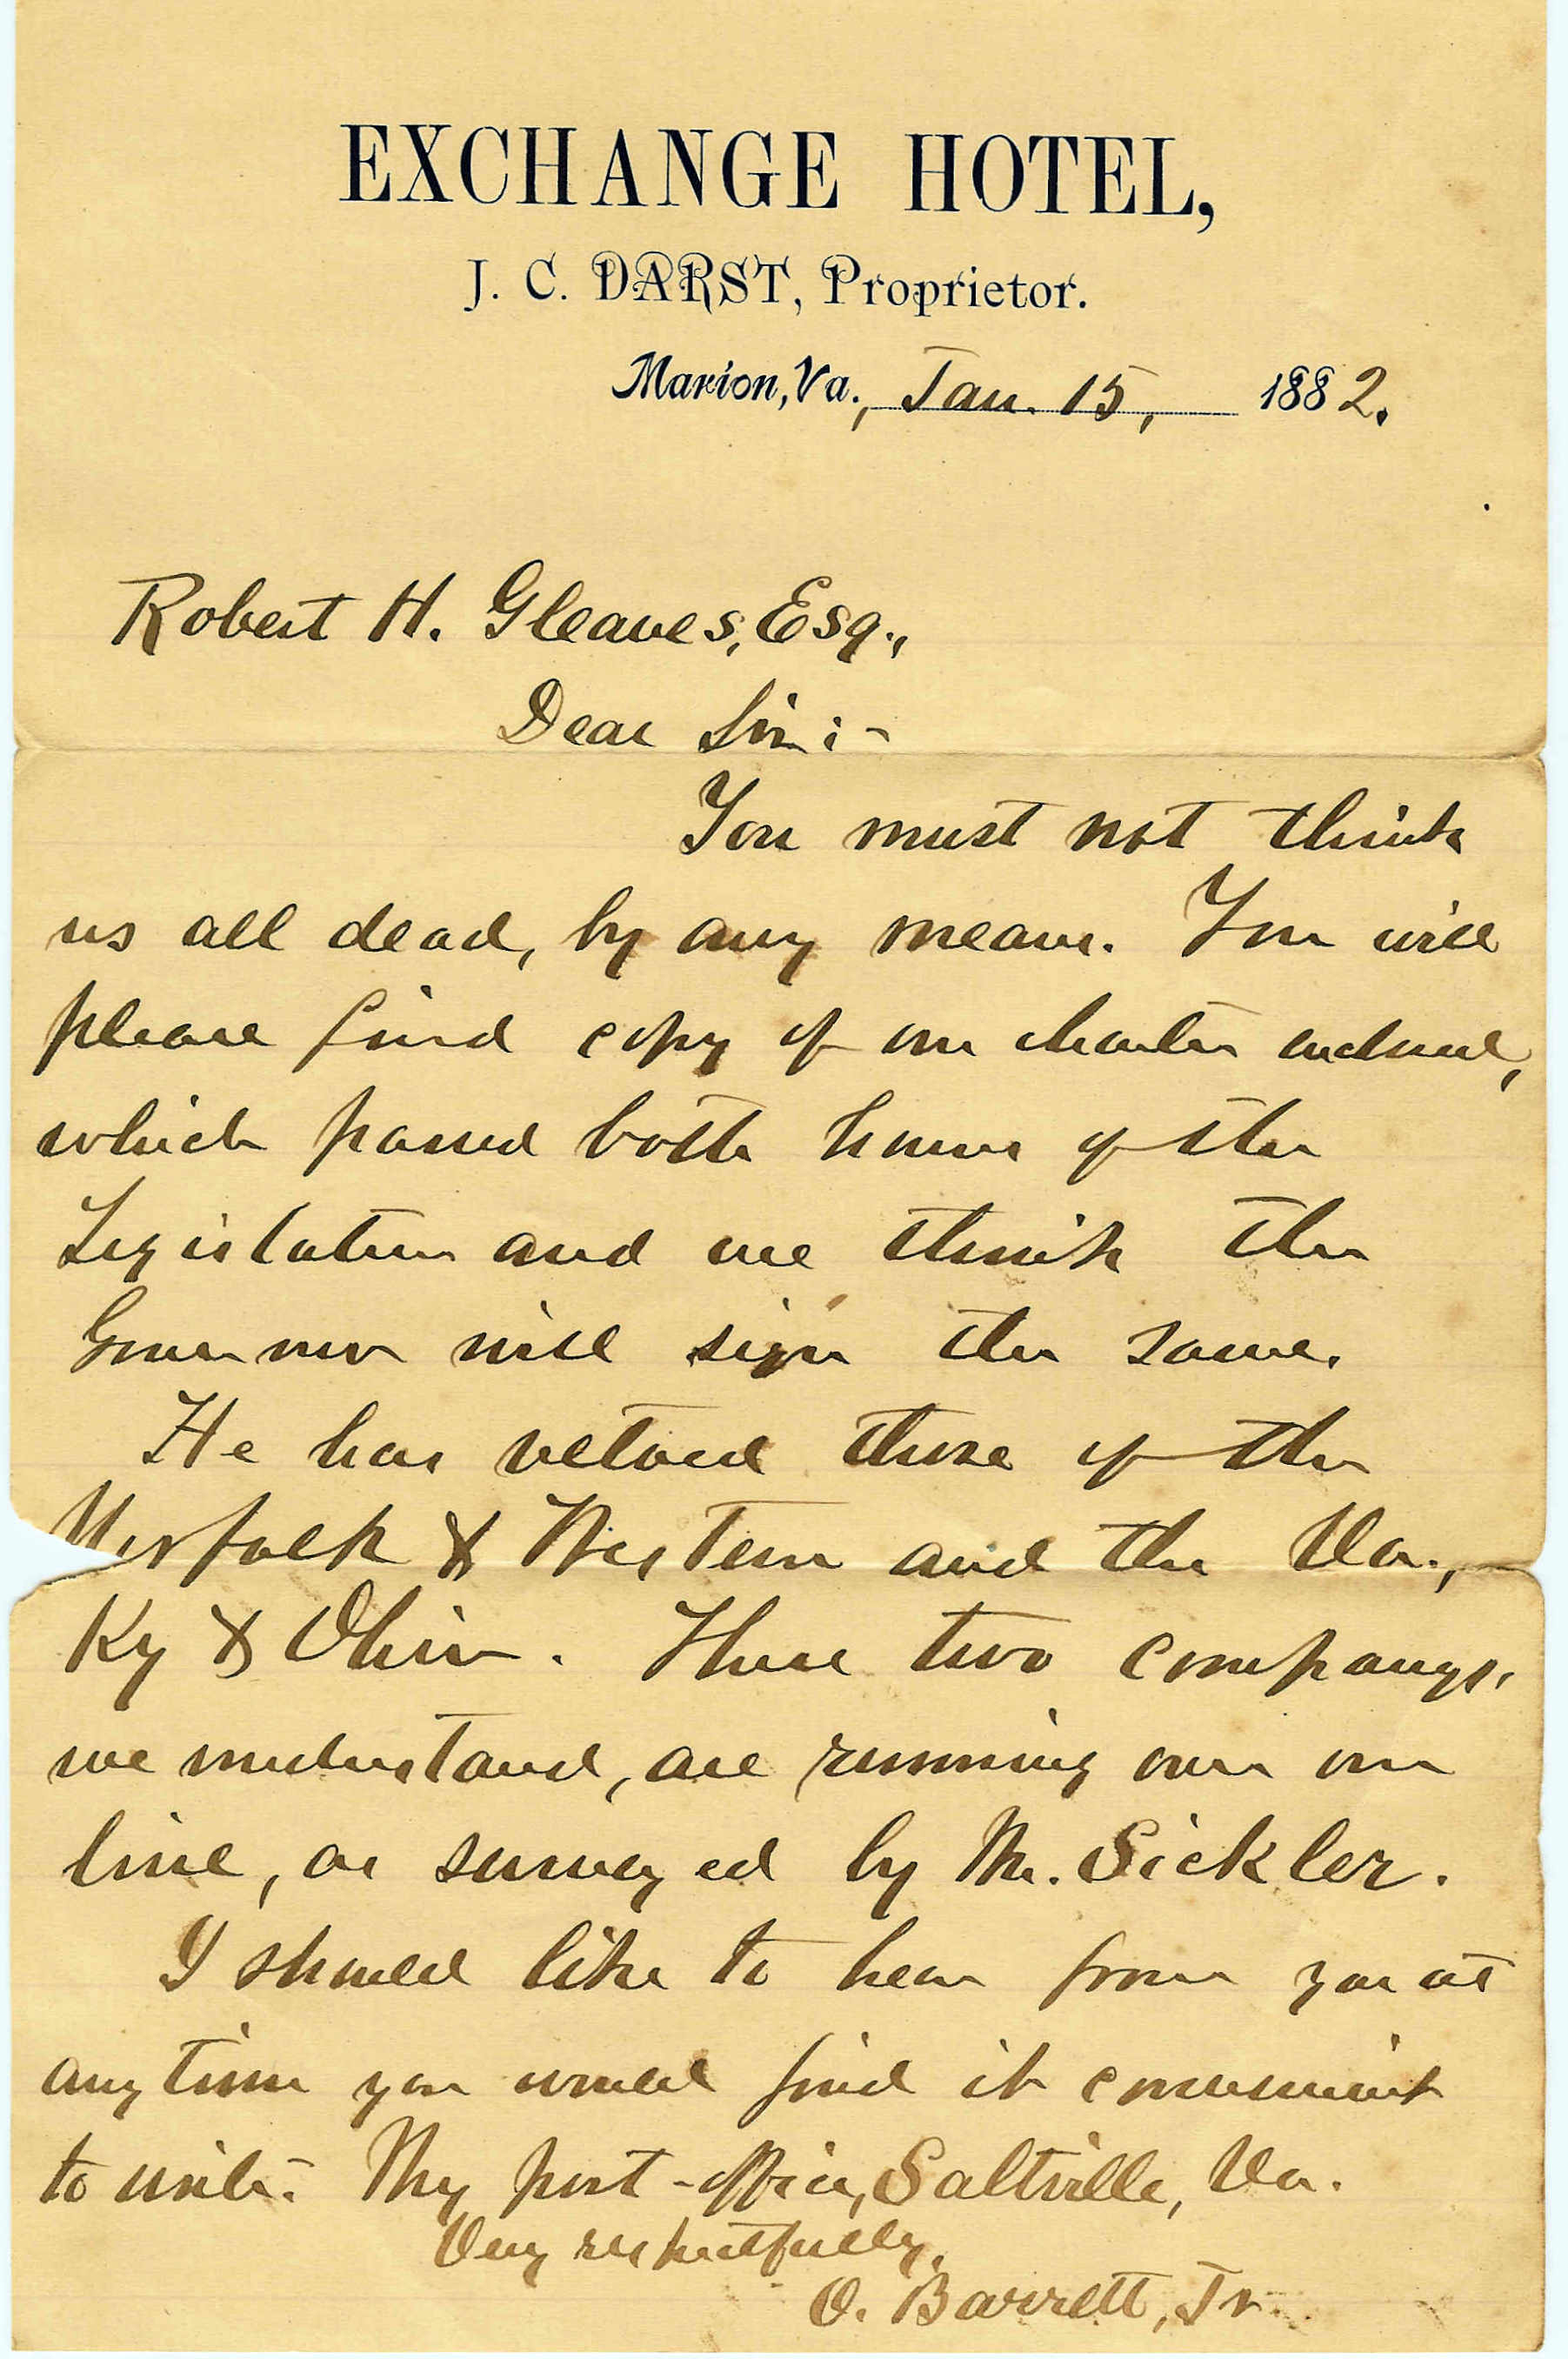 EXCHANGE HOTEL,
J. C. DARST, Proprietor.
Marion, Va., Jan. 15, 1882.
Robert H. Gleaves, Esq.,
Dear Sir:-
You must not think
us all dead, by any means. You will
please find copy of our charter enclosed,
which passed both houses of the
Legislature and we think the
Governor will sign the same.
He has vetoed those of the
Norfolk & Western and the Va.,
Ky & Ohio. These two companys,
we understand, are running over our
line, as surveyed by Mr. Sickler.
I should like to hear from you at
any time you would find it convenient
to write. My post-office, Saltville, Va.
Very respectfully,
O. Barrett, Jr.